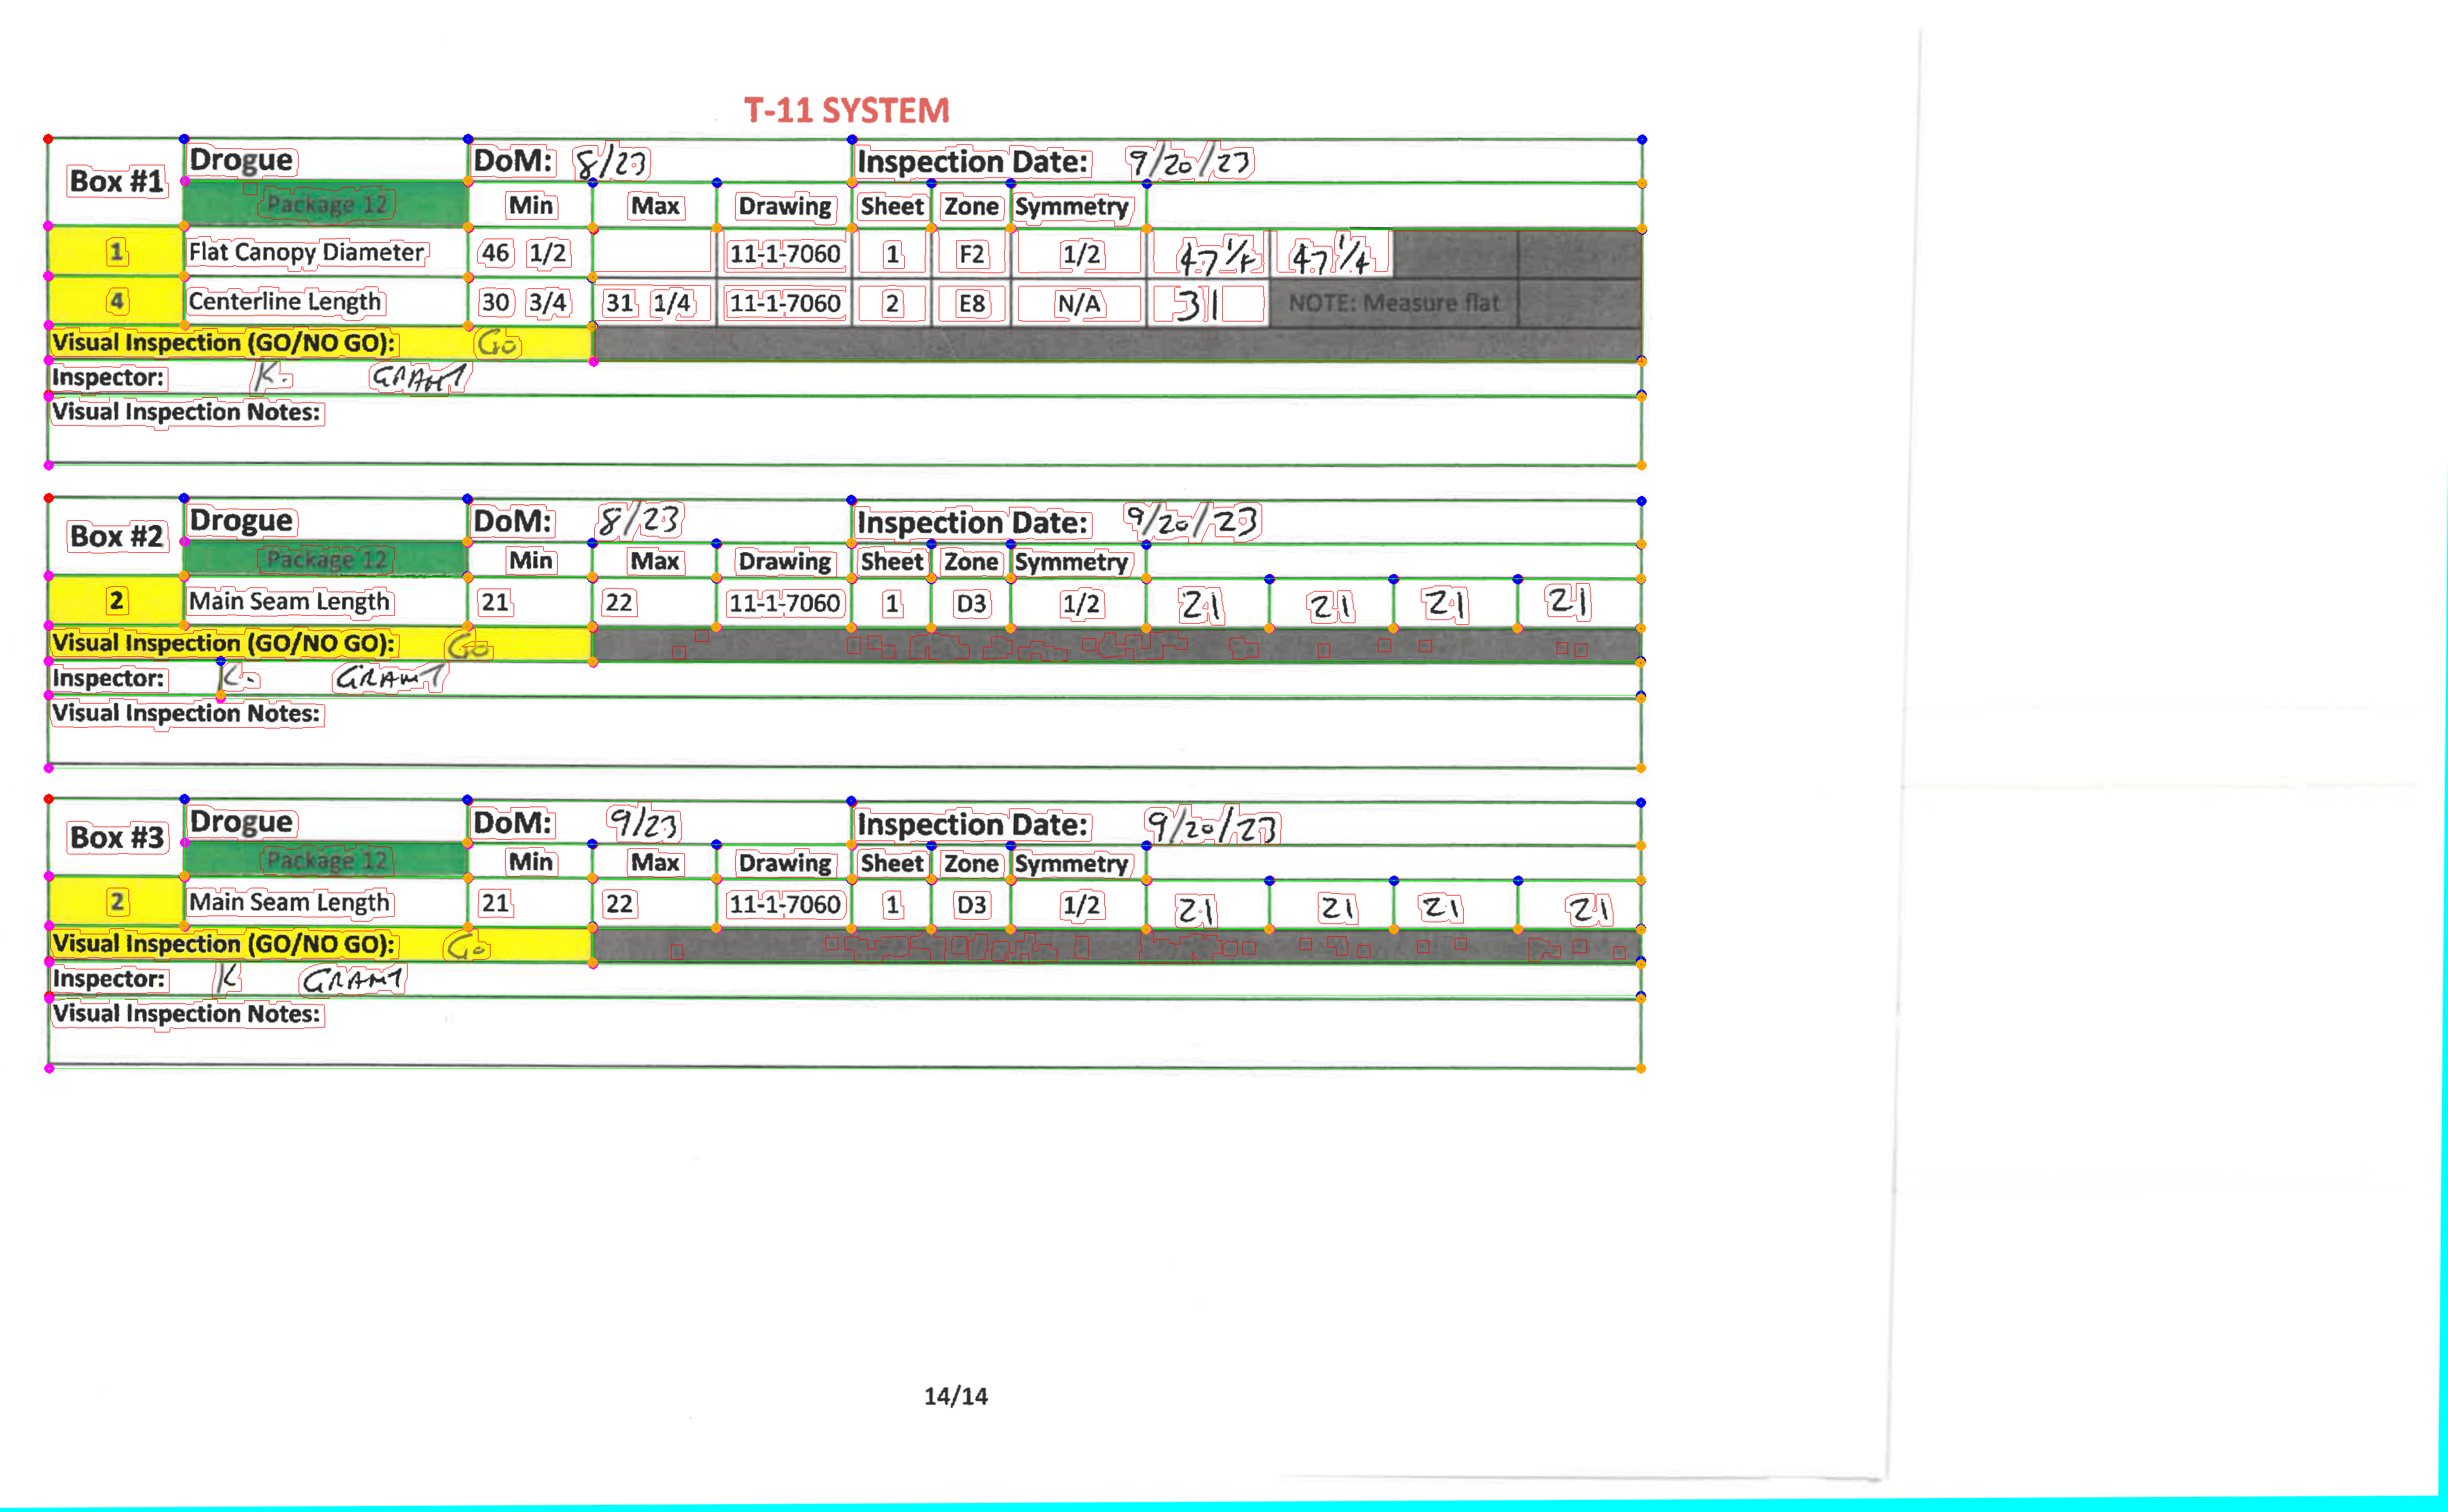 T-11 SYSTEM
Box #1 Drogue DoM: 8/23 Inspection Date: 9/20/23
Package 12 Min Max Drawing Sheet Zone Symmetry
1 Flat Canopy Diameter 46 1/2 11-1-7060 1 F2 1/2 47 1/4 47 1/4
4 Centerline Length 30 3/4 31 1/4 11-1-7060 2 E8 N/A 31 NOTE: Measure flat
Visual Inspection (GO/NO GO): GO
Inspector: K. GRANT
Visual Inspection Notes:
Box #2 Drogue DoM: 8/23 Inspection Date: 9/20/23
Package 12 Min Max Drawing Sheet Zone Symmetry
2 Main Seam Length 21 22 11-1-7060 1 D3 1/2 21 21 21 21
Visual Inspection (GO/NO GO): Go
Inspector: K. GRANT
Visual Inspection Notes:
Box #3 Drogue DoM: 9/23 Inspection Date: 9/20/23
Package 12 Min Max Drawing Sheet Zone Symmetry
2 Main Seam Length 21 22 11-1-7060 1 D3 1/2 21 21 21 21
Visual Inspection (GO/NO GO): Go
Inspector: K GRANT
Visual Inspection Notes:
14/14